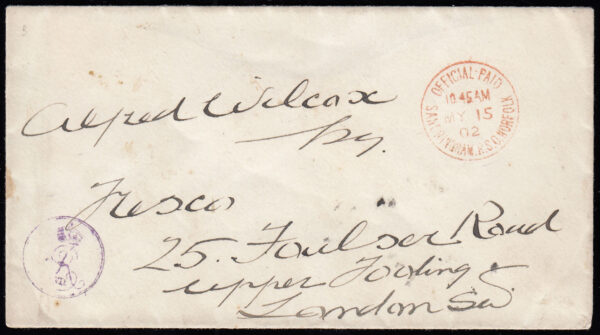 OFFICIAL PAID
10 45 AM
MY 15
02
SANDRINGHAM. R.S.O. NORFOLK
Alfred Wilcox
Esq.
Fresco
25. Foulser Road
Upper Tooting
London SW